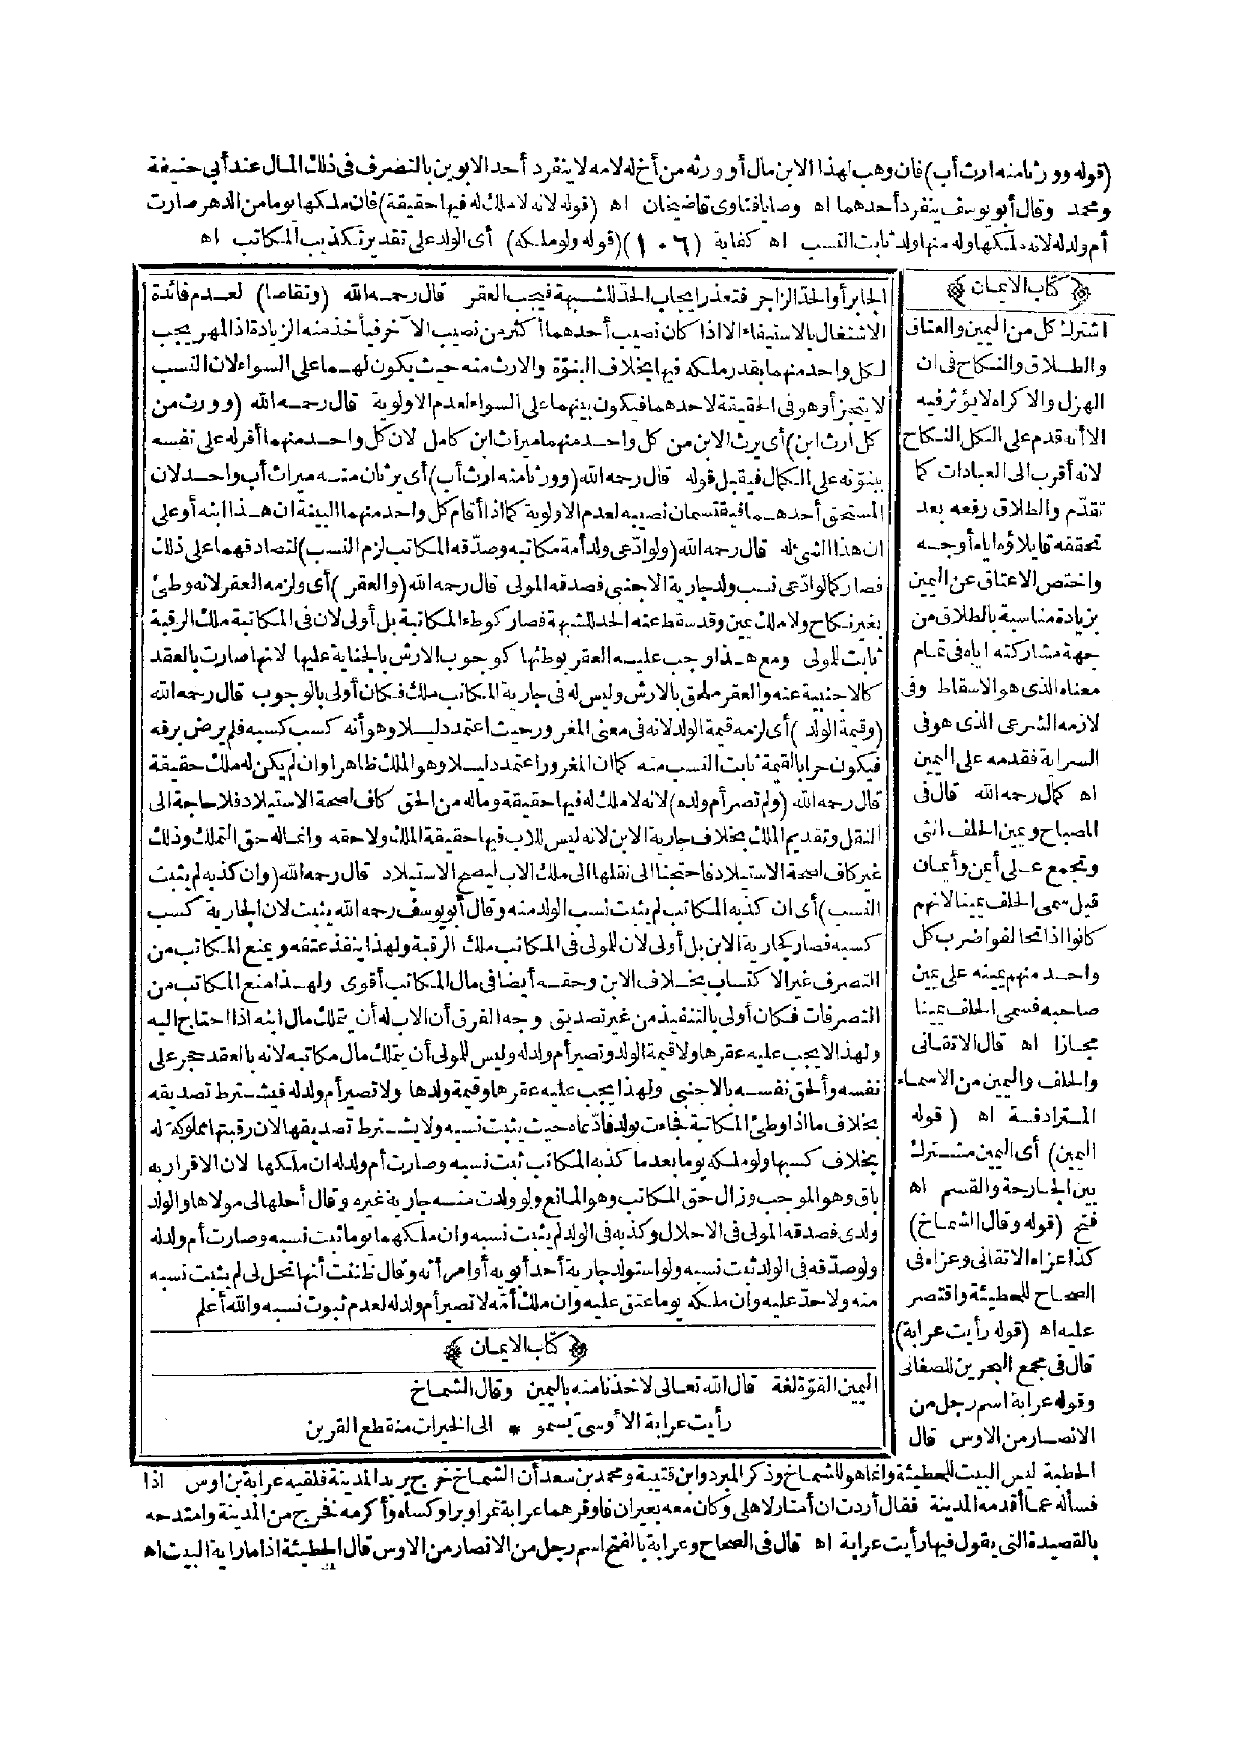 (قوله وورثا منه ارث أب) فان وهب لهذا الابن مال أو ورثه من أخ له لامه لا ينفرد أحد الابوين بالتصرف فى ذلك المال عند أبى حنيفة
ومحمد وقال أبو يوسف ينفرد أحدهما اه وصايا فتاوى قاضيخان اه (قوله لانه لا ملك له فيها حقيقة) فان ملكها يوما من الدهر صارت
أم ولد له لانه ملكها وله منها ولد ثابت النسب اه كفاية (١٠٦) (قوله ولو ملكه) أى الولد على تقدير تكذيب المكاتب اه
﴿كتاب الايمان﴾
اشترك كل من اليمين والعتاق
والطلاق والنكاح فى ان
الهزل والاكراه لا يؤثر فيه
الا أنه قدم على الكل النكاح
لانه أقرب الى العبادات كما
تقدّم والطلاق رفعه بعد
تحققه فايلاؤه اياه أوجه
واختص الاعتاق عن اليمين
بزيادة مناسبة بالطلاق من
جهة مشاركته اياه فى تمام
معناه الذى هو الاسقاط وفى
لازمه الشرعى الذى هو فى
السراية فقدمه على اليمين
اه كمال رحمه الله قال فى
المصباح ويمين الحلف انثى
وتجمع على أيمن وأيمان
قيل سمى الحلف يمينا لانهم
كانوا اذا تحالفوا ضرب كل
واحد منهم يمينه على يمين
صاحبه فسمى الحلف يمينا
مجازا اه قال الاتقانى
والحلف واليمين من الاسماء
المترادفة اه (قوله
اليمين) أى اليمين مشترك
بين الجارحة والقسم اه
فتح (قوله وقال الشماخ)
كذا عزاه الاتقانى وعزاه فى
الصحاح للحطيئة واقتصر
عليه اه (قوله رأيت عرابة)
قال فى مجمع البحرين للصغانى
وقوله عرابة اسم رجل من
الانصار من الاوس قال
الجابر أو الحدّ الزاجر فتعذر ايجاب الحدّ للشبهة فيجب العقر قال رحمه الله (وتقاصا) لعدم فائدة
الاشتغال بالاستيفاء الا اذا كان نصيب أحدهما أكثر من نصيب الآخر فيأخذ منه الزيادة اذ المهر يجب
لكل واحد منهما بقدر ملكه فيها بخلاف البنوّة والارث منه حيث يكون لهما على السواء لان النسب
لا يتجزأ وهو فى الحقيقة لاحدهما فيكون بينهما على السواء لعدم الاولوية قال رحمه الله (وورث من
كل ارث ابن) أى يرث الابن من كل واحد منهما ميراث ابن كامل لان كل واحد منهما أقر له على نفسه
ببنوّته على الكمال فيقبل قوله قال رحمه الله (وورثا منه ارث أب) أى يرثان منه ميراث أب واحد لان
المستحق أحدهما فيقتسمان نصيبه لعدم الاولوية كما اذا أقام كل واحد منهما البينة ان هذا ابنه أو على
ان هذا الشئ له قال رحمه الله (ولو ادّعى ولد أمة مكاتبه وصدّقه المكاتب لزم النسب) لتصادقهما على ذلك
فصار كما لو ادّعى نسب ولد جارية الاجنبى فصدقه المولى قال رحمه الله (والعقر) أى ولزمه العقر لانه وطئ
بغير نكاح ولا ملك يمين وقد سقط عنه الحد للشبهة فصار كوطء المكاتبة بل أولى لان فى المكاتبة ملك الرقبة
ثابت للمولى ومع هذا وجب عليه العقر بوطئها كوجوب الارش بالجناية عليها لانها صارت بالعقد
كالاجنبية عنه والعقر ملحق بالارش وليس له فى جارية المكاتب ملك فكان أولى بالوجوب قال رحمه الله
(وقيمة الولد) أى لزمه قيمة الولد لانه فى معنى المغرور حيث اعتمد دليلا وهو أنه كسب كسبه فلم يرض برقه
فيكون حرا بالقيمة ثابت النسب منه كما ان المغرور اعتمد دليلا وهو الملك ظاهرا وان لم يكن له ملك حقيقة
قال رحمه الله (ولم تصر أم ولده) لانه لا ملك له فيها حقيقة وماله من الحق كاف لصحة الاستيلاد فلا حاجة الى
النقل وتقديم الملك بخلاف جارية الابن لانه ليس للاب فيها حقيقة الملك ولا حقه وانما له حق التملك وذلك
غير كاف لصحة الاستيلاد فاحتجنا الى نقلها الى ملك الاب ليصح الاستيلاد قال رحمه الله (وان كذبه لم يثبت
النسب) أى ان كذبه المكاتب لم يثبت نسب الولد منه وقال أبو يوسف رحمه الله يثبت لان الجارية كسب
كسبه فصار كجارية الابن بل أولى لان للمولى فى المكاتب ملك الرقبة ولهذا ينفذ عتقه ويمنع المكاتب من
التصرف غير الاكتساب بخلاف الابن وحقه أيضا فى مال المكاتب أقوى ولهذا منع المكاتب من
التصرفات فكان أولى بالتنفيذ من غير تصديق وجه الفرق أن الاب له أن يتملك مال ابنه اذا احتاج اليه
ولهذا لا يجب عليه عقرها ولا قيمة الولد وتصير أم ولد له وليس للمولى أن يتملك مال مكاتبه لانه بالعقد حجر على
نفسه وألحق نفسه بالاجنبى ولهذا يجب عليه عقرها وقيمة ولدها ولا تصير أم ولد له فيشترط تصديقه
بخلاف ما اذا وطئ المكاتبة فجاءت بولد فادّعاه حيث يثبت نسبه ولا يشترط تصديقها لان رقبتها مملوكة له
بخلاف كسبها ولو ملكه يوما بعد ما كذبه المكاتب ثبت نسبه وصارت أم ولد له ان ملكها لان الاقرار به
باق وهو الموجب وزال حق المكاتب وهو المانع ولو ولدت منه جارية غيره وقال أحلها لى مولاها والولد
ولدى فصدقه المولى فى الاحلال وكذبه فى الولد لم يثبت نسبه وان ملكهما يوما ثبت نسبه وصارت أم ولد له
ولو صدّقه فى الولد ثبت نسبه ولو استولد جارية أحد أبويه أو امرأته وقال ظننت أنها تحل لى لم يثبت نسبه
منه ولا حدّ عليه وان ملكه يوما عتق عليه وان ملك أمّه لا تصير أم ولد له لعدم ثبوت نسبه والله أعلم
﴿كتاب الايمان﴾
اليمين القوّة لغة قال الله تعالى لاخذنا منه باليمين وقال الشماخ
رأيت عرابة الأوسىّ يسمو * الى الخيرات منقطع القرين
الحطية ليس البيت للحطيئة وانما هو للشماخ وذكر المبرد وابن قتيبة ومحمد بن سعد أن الشماخ خرج يريد المدينة فلقيه عرابة بن اوس اذا
فسأله عما أقدمه المدينة فقال أردت ان أمتار لاهلى وكان معه بعيران فاوقرهما عرابة تمرا وبرا وكساه وأكرمه فخرج من المدينة وامتدحه
بالقصيدة التى يقول فيها رأيت عرابة اه قال فى الصحاح وعرابة بالفتح اسم رجل من الانصار من الاوس قال الحطيئة اذا ما راية البيت اه